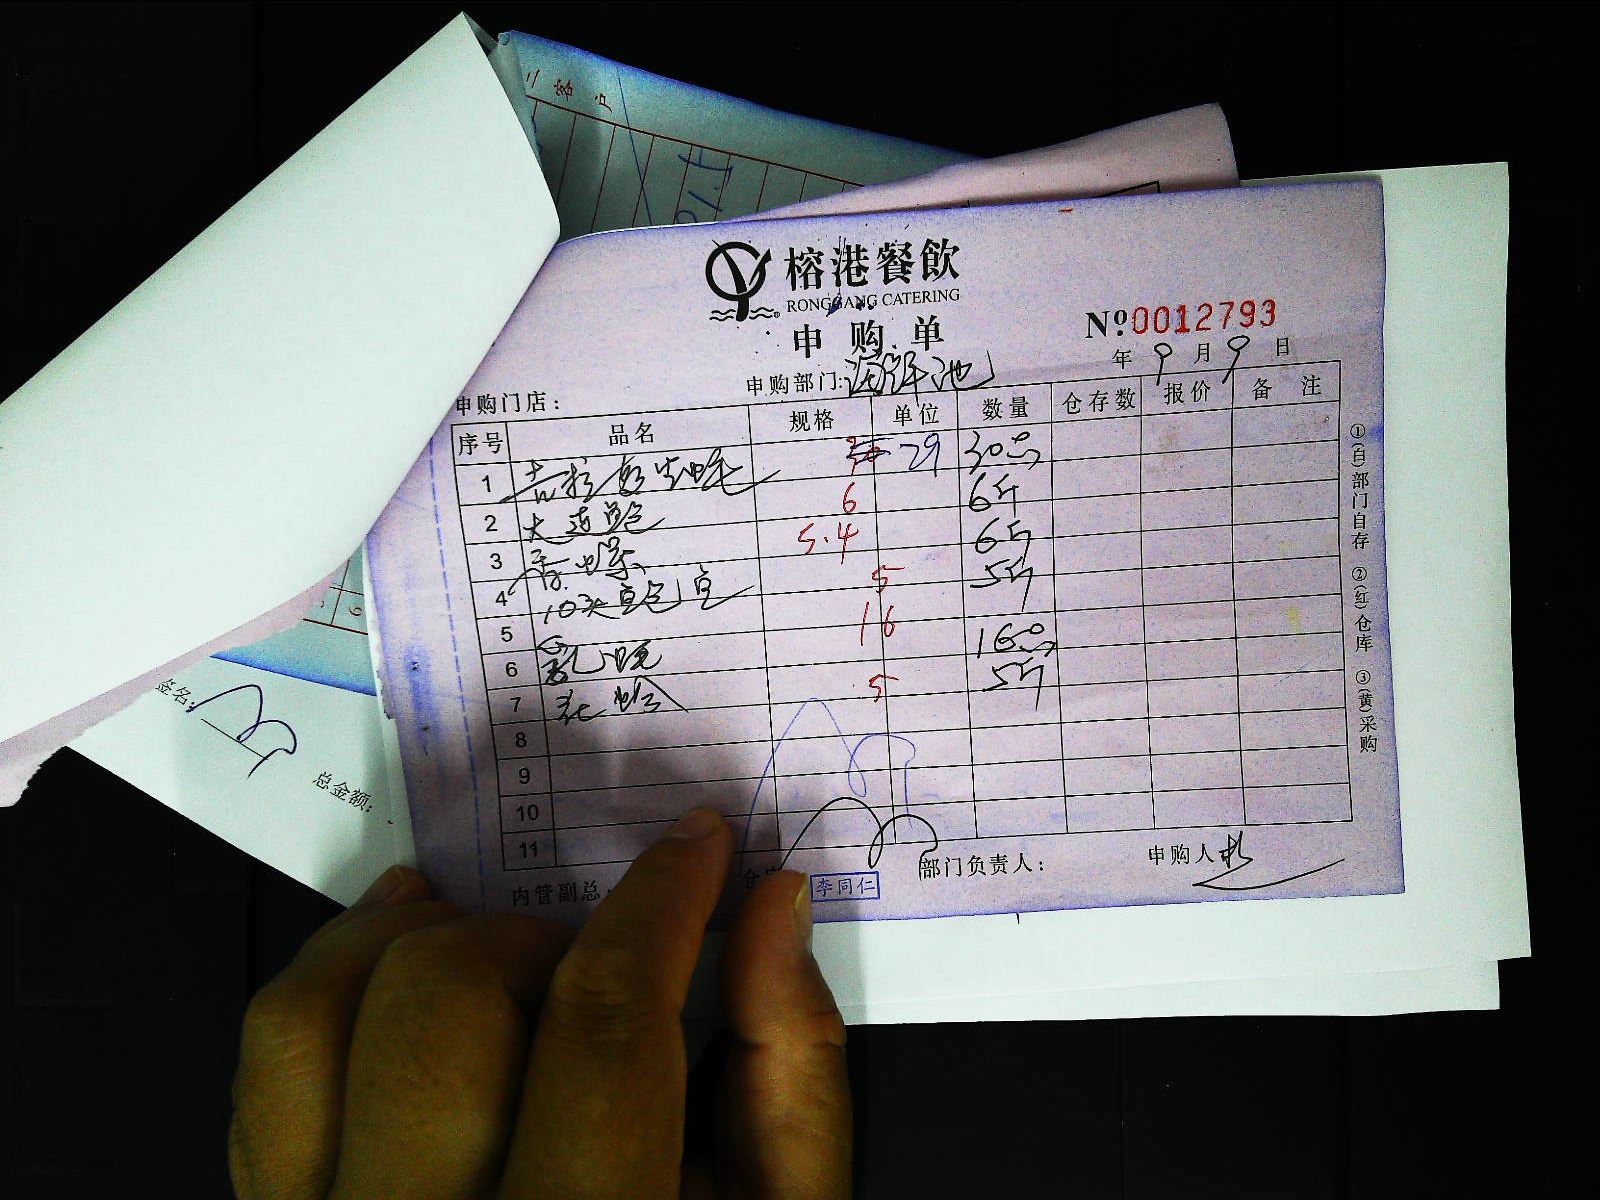 二客户
榕港餐飲
RONGGANG CATERING
申购单
№ 0012793
年 9 月 9 日
申购门店： 申购部门：海鲜池
序号 品名 规格 单位 数量 仓存数 报价 备注
1 吉拉多生蚝 29 30只
2 大连鲍 6 6斤
3 香螺 5.4 6斤
4 10头鲍鱼 5 5斤
5 16
6 16只
7 花蛤 5 5斤
8
9
10
11
内管副总： 李同仁 部门负责人： 申购人
①(白)部门自存 ②(红)仓库 ③(黄)采购
签名：
总金额：